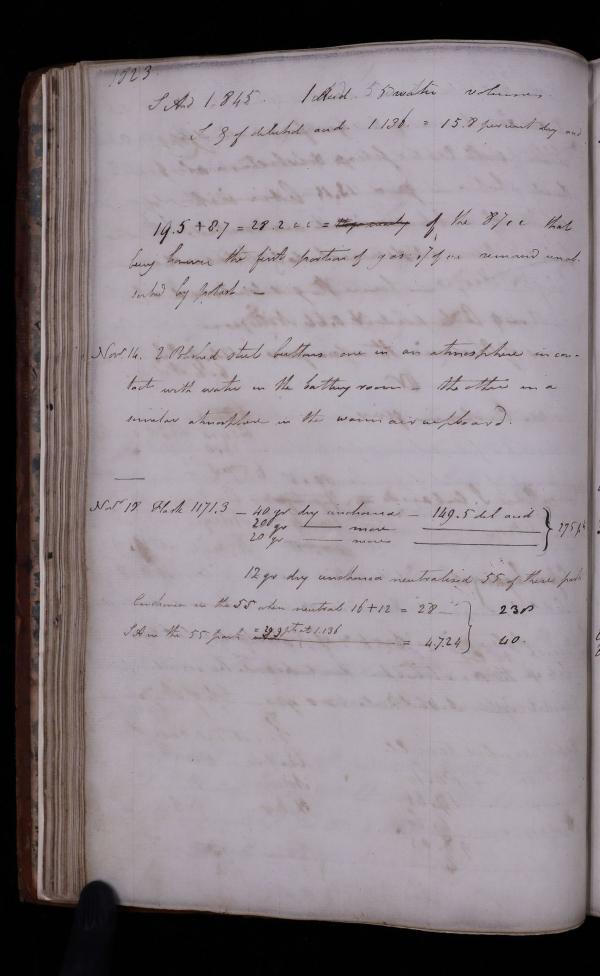 1823
S A 1.845. 1 Acid. 55 water volumes
S. G of diluted acid. 1.136. = 15.8 per cent dry acid
19.5 + 8.7 = 28.2 c i = of the 87 c i that
being however the first portion of gas removed unab-
sorbed by potash -
Novr 14. 2 Polished steel buttons one in an atmosphere in con-
tact with water in the battery room - the other in a
similar atmosphere in the warm air cupboard.
Novr 18 Flask 1171.3 - 40 gr dry cinchonia - 149.5 dil acid
20 gr —— more
20 gr —— more
275 p
12 gr dry cinchonia neutralised 55 of these parts
Cinchonia in the 55 when neutral 16 + 12 = 28 238
S A in the 55 parts = 29.9 pts at 1.136 = 4.724 40.